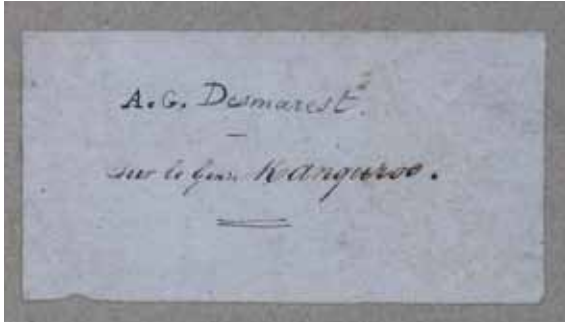 A. G. Desmarest.
sur le genre Kanguroo.